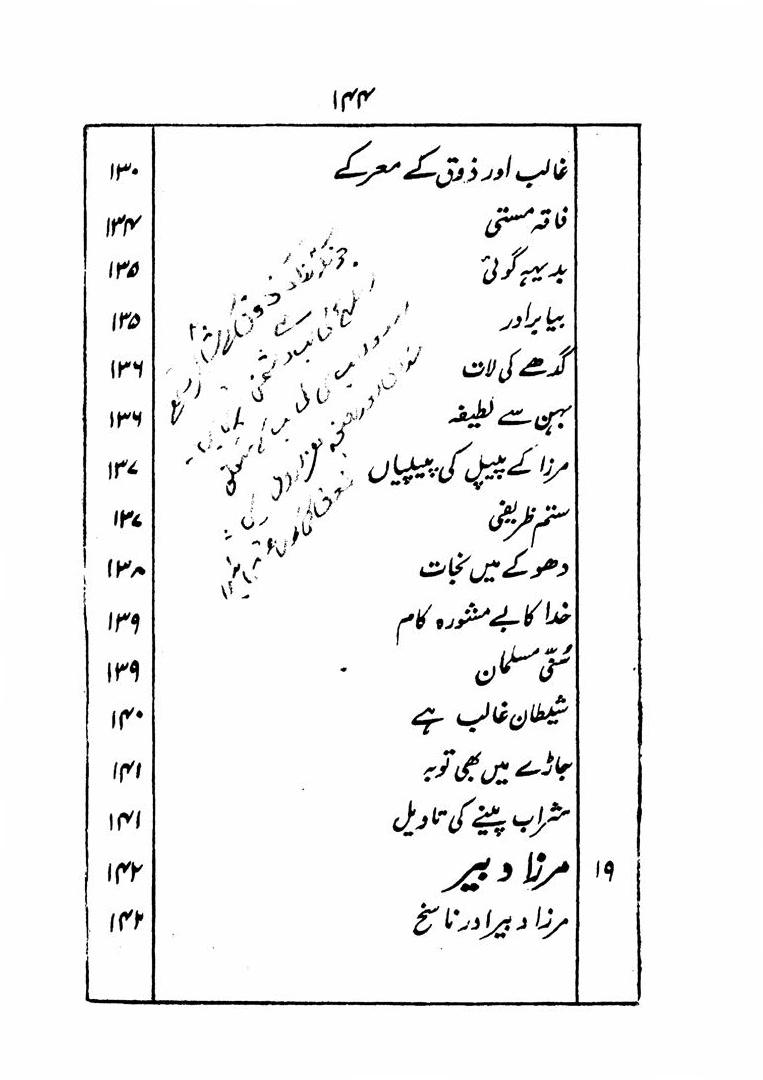 ۱۴۴
غالب اور ذوق کے معرکے ۱۳۰
فاقہ مستی ۱۳۴
بدیہہ گوئی ۱۳۵
بیا برادر ۱۳۵
گدھے کی لات ۱۳۶
بہن سے لطیفہ ۱۳۶
مرزا کے پیپل کی پیپلیاں ۱۳۷
ستم ظریفی ۱۳۷
دھوکے میں نجات ۱۳۸
خدا کا بے مشورہ کام ۱۳۹
سُنّی مسلمان ۱۳۹
شیطان غالب ہے ۱۴۰
جاڑے میں بھی توبہ ۱۴۱
شراب پینے کی تاویل ۱۴۱
۱۹ مرزا دبیر ۱۴۲
مرزا دبیر اور ناسخ ۱۴۲